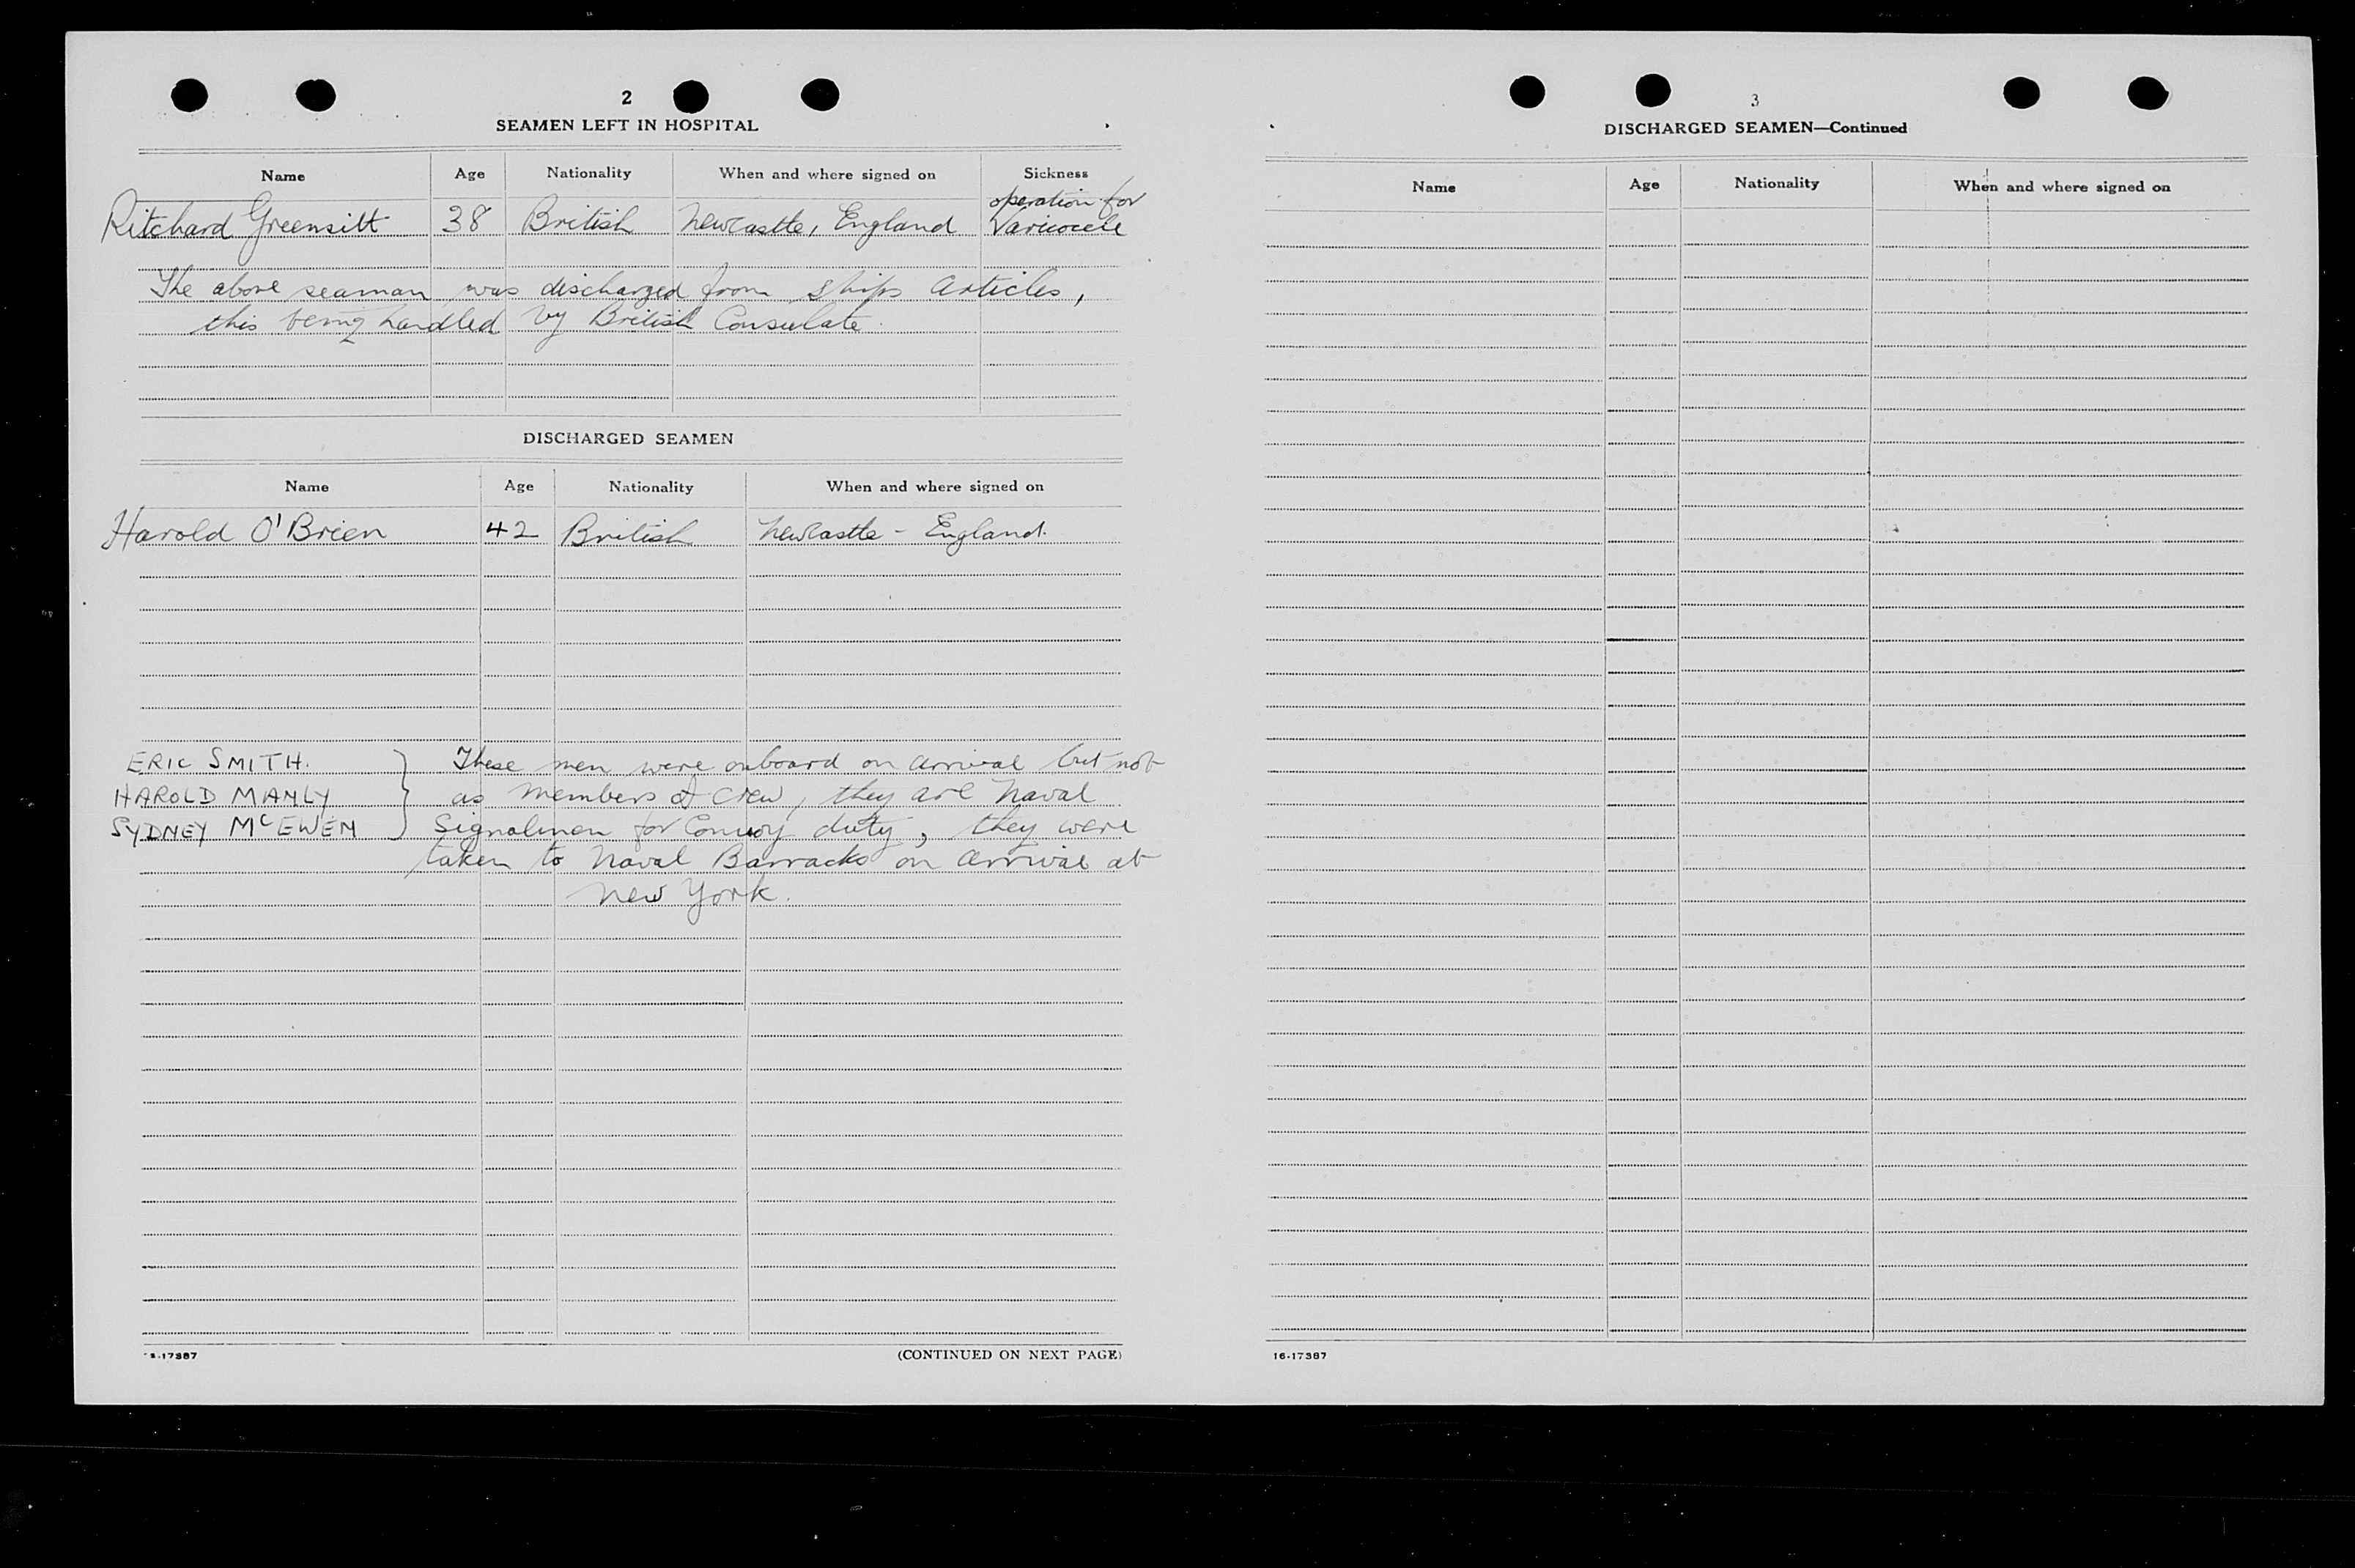 2
SEAMEN LEFT IN HOSPITAL
Name Age Nationality When and where signed on Sickness
operation for
Ritchard Greensitt 38 British Newcastle, England Varicocele
The above seaman was discharged from ships articles,
this being handled by British Consulate.
DISCHARGED SEAMEN
Name Age Nationality When and where signed on
Harold O'Brien 42 British Newcastle - England.
ERIC SMITH. } These men were onboard on arrival but not
HAROLD MANLY as members of crew, they are Naval
SYDNEY McEWEN Signalmen for Convoy duty, they were
taken to Naval Barracks on arrival at
New York.
(CONTINUED ON NEXT PAGE)
3
DISCHARGED SEAMEN—Continued
Name Age Nationality When and where signed on
16-17387